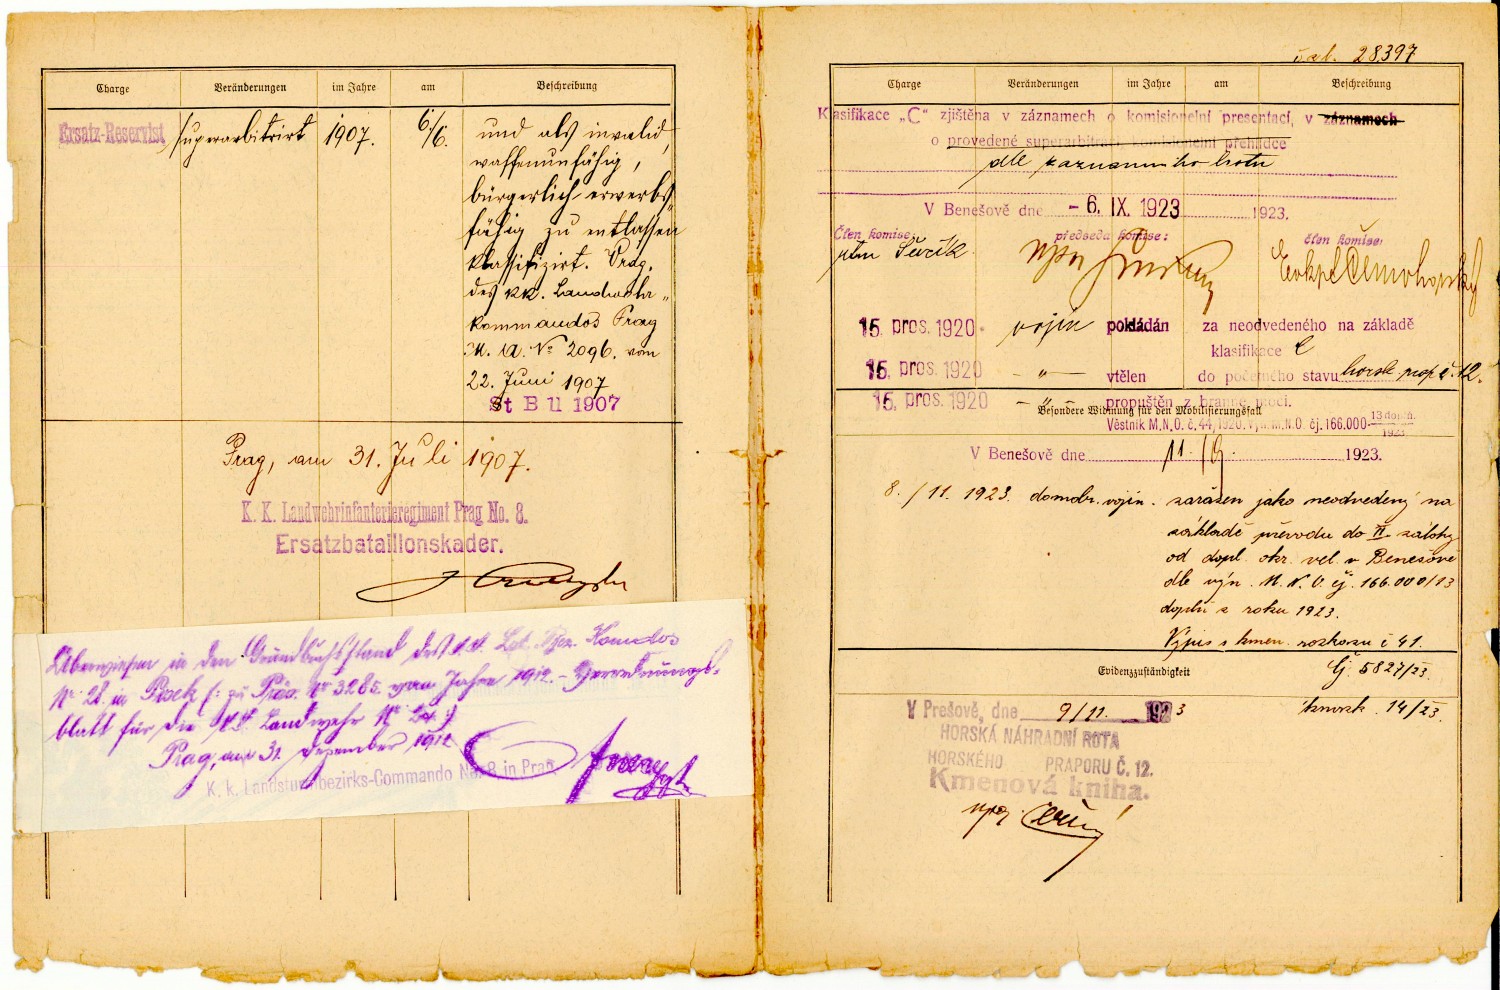 Charge Veränderungen im Jahre am Beschreibung
Ersatz-Reservist superarbitrirt 1907. 6./6. und als invalid,
waffenunfähig,
bürgerlich erwerbs„
fähig zu entlassen
klassifizirt. Prag.
des kk. Landwehr„
kommandos Prag
M. A. No 2096. vom
22. Juni 1907
St B 11 1907
Prag, am 31. Juli 1907.
K. K. Landwehrinfanterieregiment Prag No. 8.
Ersatzbataillonskader.
Überwiesen in den Grundbuchsstand des k.k. Lst. Bez. Komdos
Nr 28. in Pisek /: zu Präs. Nr 3285. vom Jahre 1912. - Verordnungs-
blatt für die k.k. Landwehr Nr
Prag, am 31. Dezember 1912
K. k. Landsturmbezirks-Commando No. 8 in Prag.
28397
Charge Veränderungen im Jahre am Beschreibung
Klasifikace „C“ zjištěna v záznamech o komisionelní presentaci, v záznamech
o provedené superarbitraci, komisionelní přehlídce
dle záznamního listu
V Benešově dne - 6. IX. 1923 1923.
Člen komise: předseda komise: člen komise:
15. pros. 1920. vojín pokládán za neodvedeného na základě
klasifikace C
15. pros. 1920 -„- vtělen do početného stavu horsk. prap. č. 12.
15. pros. 1920 -„- propuštěn z branné moci.
Besondere Widmung für den Mobilisierungsfall
Věstník M.N.O. č. 44/1920. Výn. M.N.O. čj. 166.000-13 dopln./1923
V Benešově dne 11./9. 1923.
8./11. 1923. domobr. vojín. zařázen jako neodvedený na
základě převodu do II. zálohy
od dopl. okr. vel. v Benešově
dle výn. M. N. O. čj. 166.000/13
doplň z roku 1923.
Výpis z kmen. rozkazu č 41.
Evidenzzuständigkeit
Čj. 5827/23.
V Prešově, dne 9/11. 1923
14/23.
HORSKÁ NÁHRADNÍ ROTA
HORSKÉHO PRAPORU Č. 12.
Kmenová kniha.